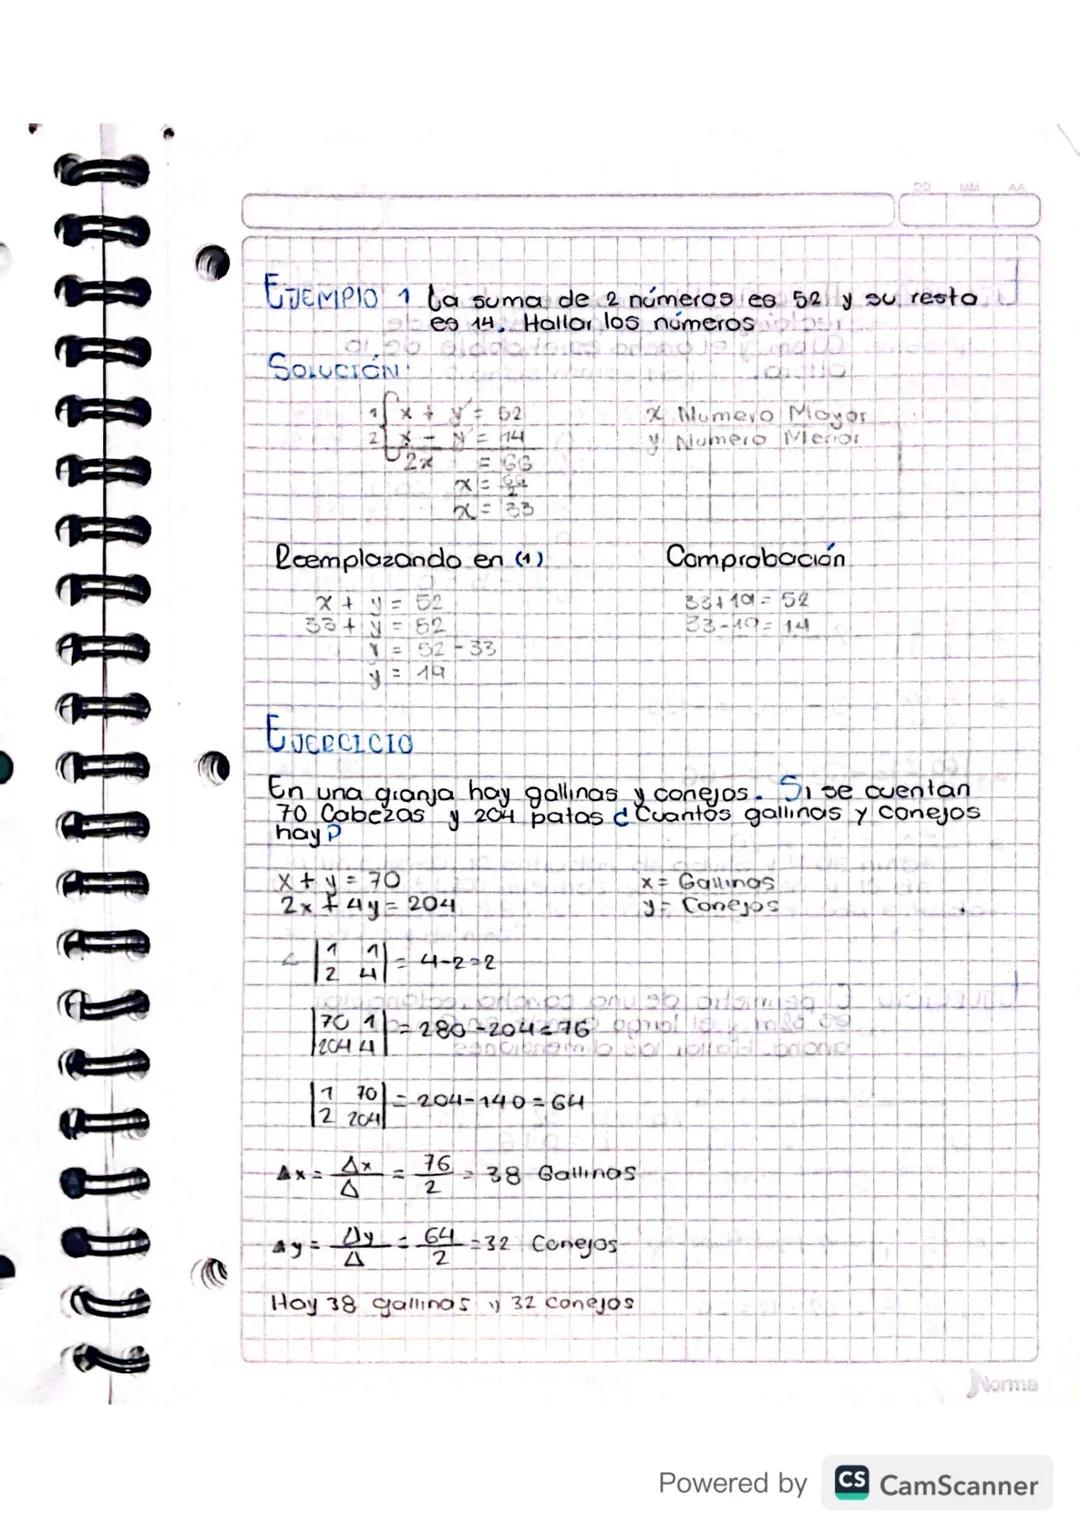 DD MM AA
EJEMPlO 1 La suma de 2 números es 52 y su resta
es 14. Hallar los números
SOLUCIÓN:
1 x + y = 52 x Numero Mayor
2 x - y = 14 y Numero Menor
2x = 66
x = 66/2
x = 33
Reemplazando en (1) Comprobación
x + y = 52 33+19 = 52
33 + y = 52 33-19 = 14
y = 52 - 33
y = 19
EJERCICIO
En una granja hay gallinas y conejos. Si se cuentan
70 Cabezas y 204 patas ¿Cuantos gallinas y conejos
hay?
x + y = 70 x = Gallinas
2x + 4y = 204 y = Conejos
|1 1|
|2 4| = 4-2=2
|70 1|
|204 4| = 280-204=76
|1 70|
|2 204| = 204-140=64
Δx = Δx/Δ = 76/2 = 38 Gallinas
Δy = Δy/Δ = 64/2 = 32 Conejos
Hay 38 gallinas y 32 conejos
Norma
Powered by CS CamScanner